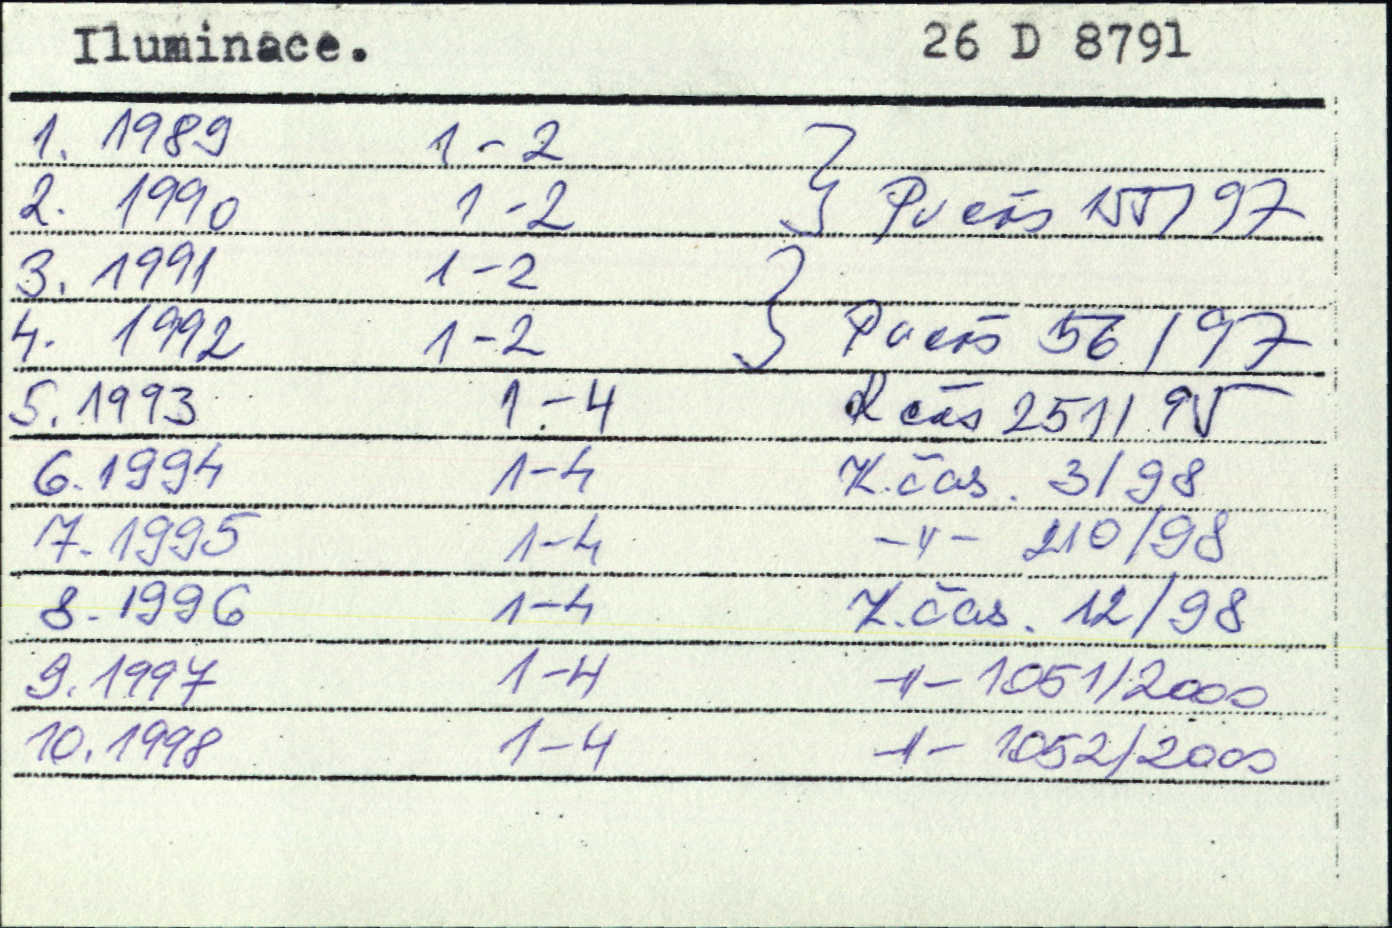 Iluminace. 26 D 8791
1. 1989 1-2
2. 1990 1-2 } Pv čas 55/97
3. 1991 1-2
4. 1992 1-2 } Pv čas 56/97
5. 1993 1-4 K čas 251/95
6. 1994 1-4 K.čas. 3/98
7. 1995 1-4 -"- 210/98
8. 1996 1-4 K.čas. 12/98
9. 1997 1-4 -"- 1051/2000
10. 1998 1-4 -"- 1052/2000